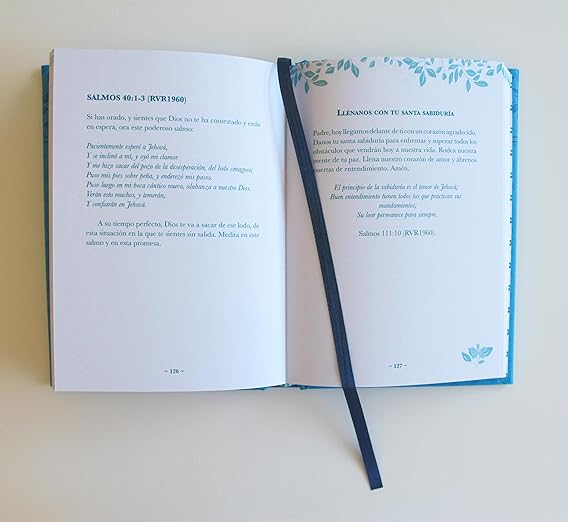 SALMOS 40:1-3 (RVR1960)
Si has orado, y sientes que Dios no te ha contestado y estás
en espera, ora este poderoso salmo:
Pacientemente esperé a Jehová,
Y se inclinó a mí, y oyó mi clamor.
Y me hizo sacar del pozo de la desesperación, del lodo cenagoso;
Puso mis pies sobre peña, y enderezó mis pasos.
Puso luego en mi boca cántico nuevo, alabanza a nuestro Dios.
Verán esto muchos, y temerán,
Y confiarán en Jehová.
A su tiempo perfecto, Dios te va a sacar de ese lodo, de
esta situación en la que te sientes sin salida. Medita en este
salmo y en esta promesa.
~ 126 ~
Llénanos con tu santa sabiduría
Padre, hoy llegamos delante de ti con un corazón agradecido.
Danos tu sabiduría para enfrentar y superar todos los
obstáculos que vendrán hoy a nuestra vida. Rodea nuestra
mente de tu paz. Llena nuestro corazón de amor y ábrenos
puertas de entendimiento. Amén.
El principio de la sabiduría es el temor de Jehová;
Buen entendimiento tienen todos los que practican sus
mandamientos;
Su loor permanece para siempre.
Salmos 111:10 (RVR1960)
~ 127 ~